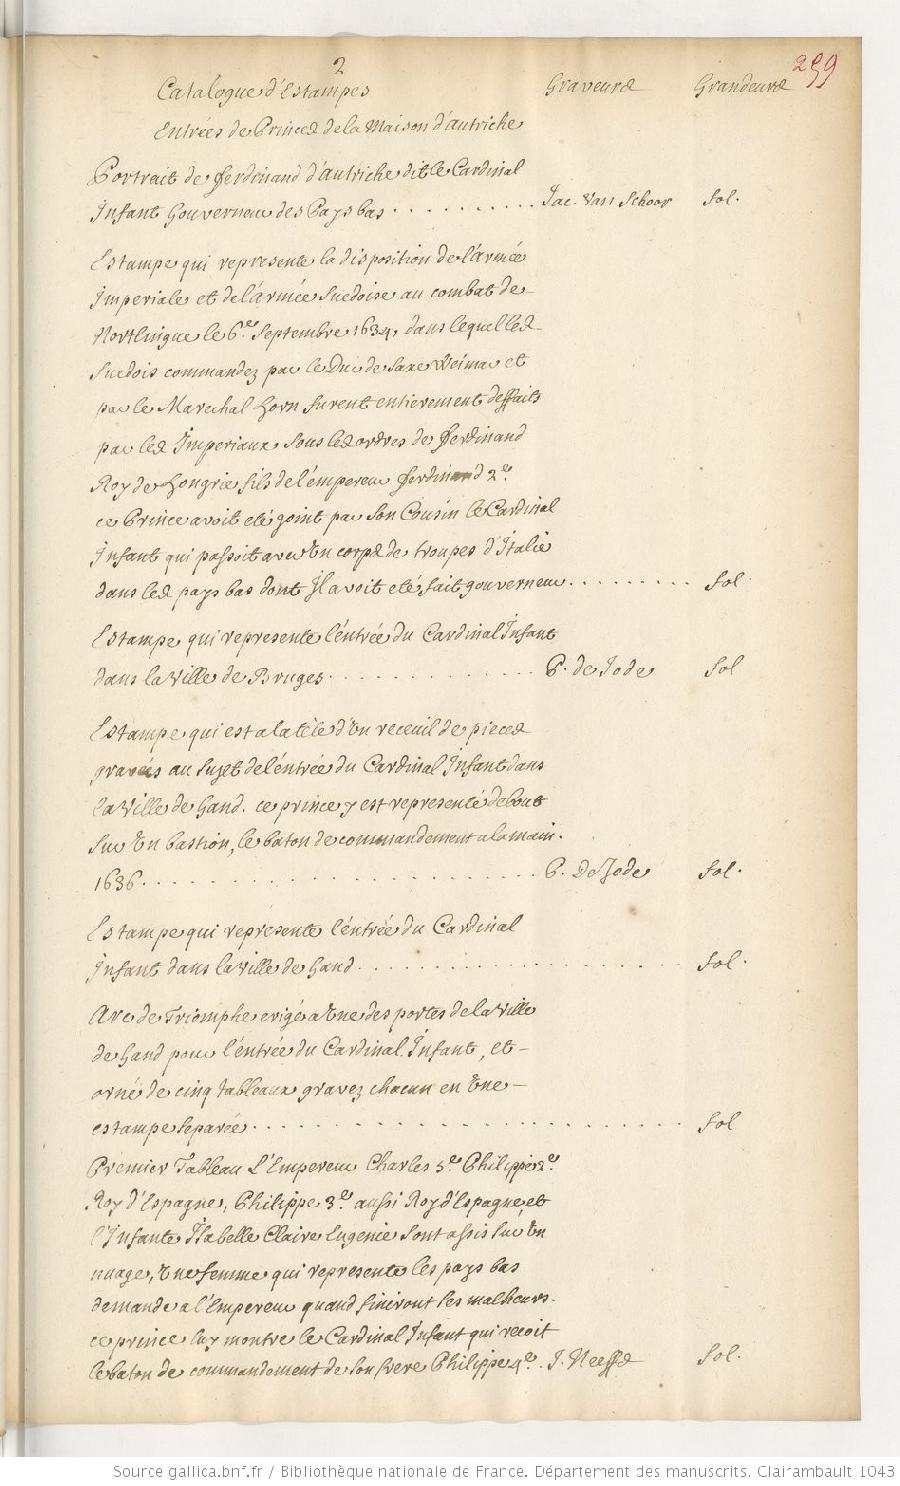 2
299
Catalogue d'Estampes Graveurs Grandeurs
Entrées de Princes de la Maison d'autriche
Portrait de Ferdinand d'autriche dit le Cardinal
Infant Gouverneur des Pays bas . . . . . . . . . . Jac. Van Schoor fol.
Estampe qui represente la disposition de l'armée
Imperiale et de l'armée suedoise au combat de
Nortlingue le 6.e Septembre 1634, dans lequel les
suedois commandez par le Duc de Saxe Weimar et
par le Marechal horn furent entierement deffaits
par les Imperiaux sous les ordres de Ferdinand
Roy de hongrie fils de l'empereur Ferdinand 2.e
ce Prince avoit eté joint par son Cousin le Cardinal
Infant qui passoit avec un corps de troupes d'Italie
dans les pays bas dont Il avoit eté fait gouverneur . . . . . . . . . fol
Estampe qui represente l'entrée du Cardinal Infant
dans la Ville de Bruges . . . . . . . . . . . . . P. de Jode fol
Estampe qui est a la tête d'un receuil de pieces
gravées au sujet de l'entrée du Cardinal Infant dans
la Ville de Gand. ce prince y est representé debout
sur un bastion, le baton de commandement a la main.
1636 . . . . . . . . . . . . . . . . . . . P. De Jode fol.
Estampe qui represente l'entrée du Cardinal
Infant dans la Ville de Gand . . . . . . . . . . . . . . . fol.
Arc de Triomphe erigé a une des portes de la Ville
de Gand pour l'entrée du Cardinal Infant, et
orné de cinq tableaux gravez chacun en une
estampe separée . . . . . . . . . . . . . . . . . . . . fol
Premier Tableau L'Empereur Charles 5.e Philippe 2.e
Roy d'Espagne, Philippe 3.e aussi Roy d'Espagne, et
l'Infante Isabelle Claire Eugenie sont assis sur un
nuage, une femme qui represente les pays bas
demande a l'Empereur quand finiront ses malheurs.
ce prince luy montre le Cardinal Infant qui recoit
le baton de commandement de son frere Philippe 4.e . J. Neeffs fol.
Source gallica.bnf.fr / Bibliothèque nationale de France. Département des manuscrits. Clairambault 1043